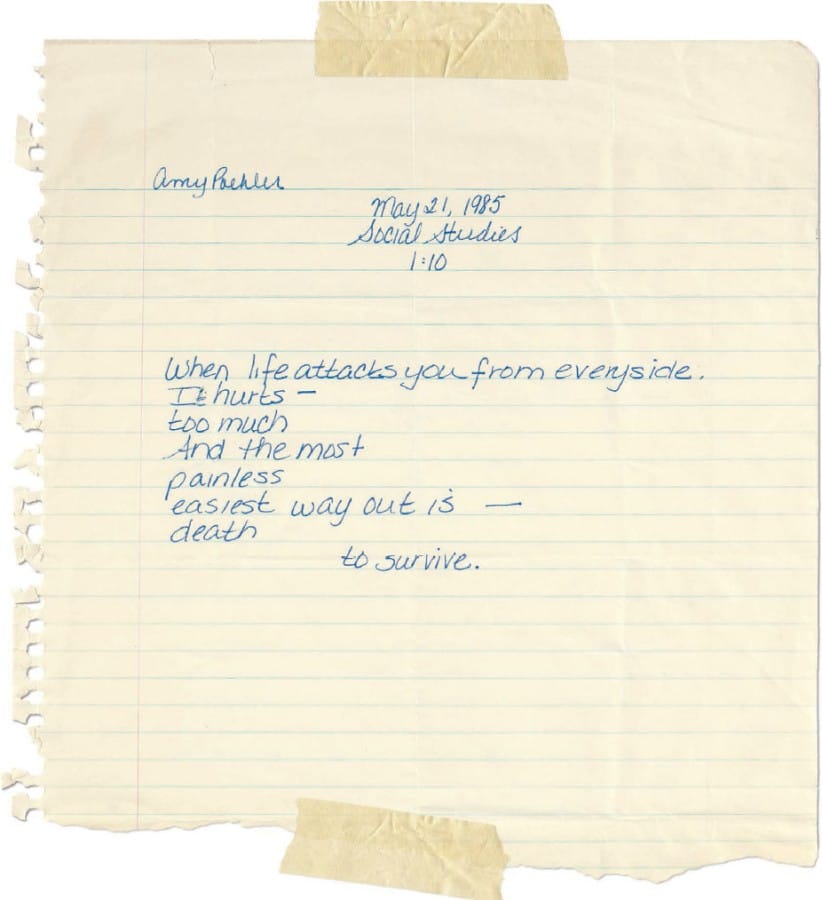 Amy Poehler
May 21, 1985
Social Studies
1:10
When life attacks you from everyside.
It hurts —
too much
And the most
painless
easiest way out is —
death
to survive.